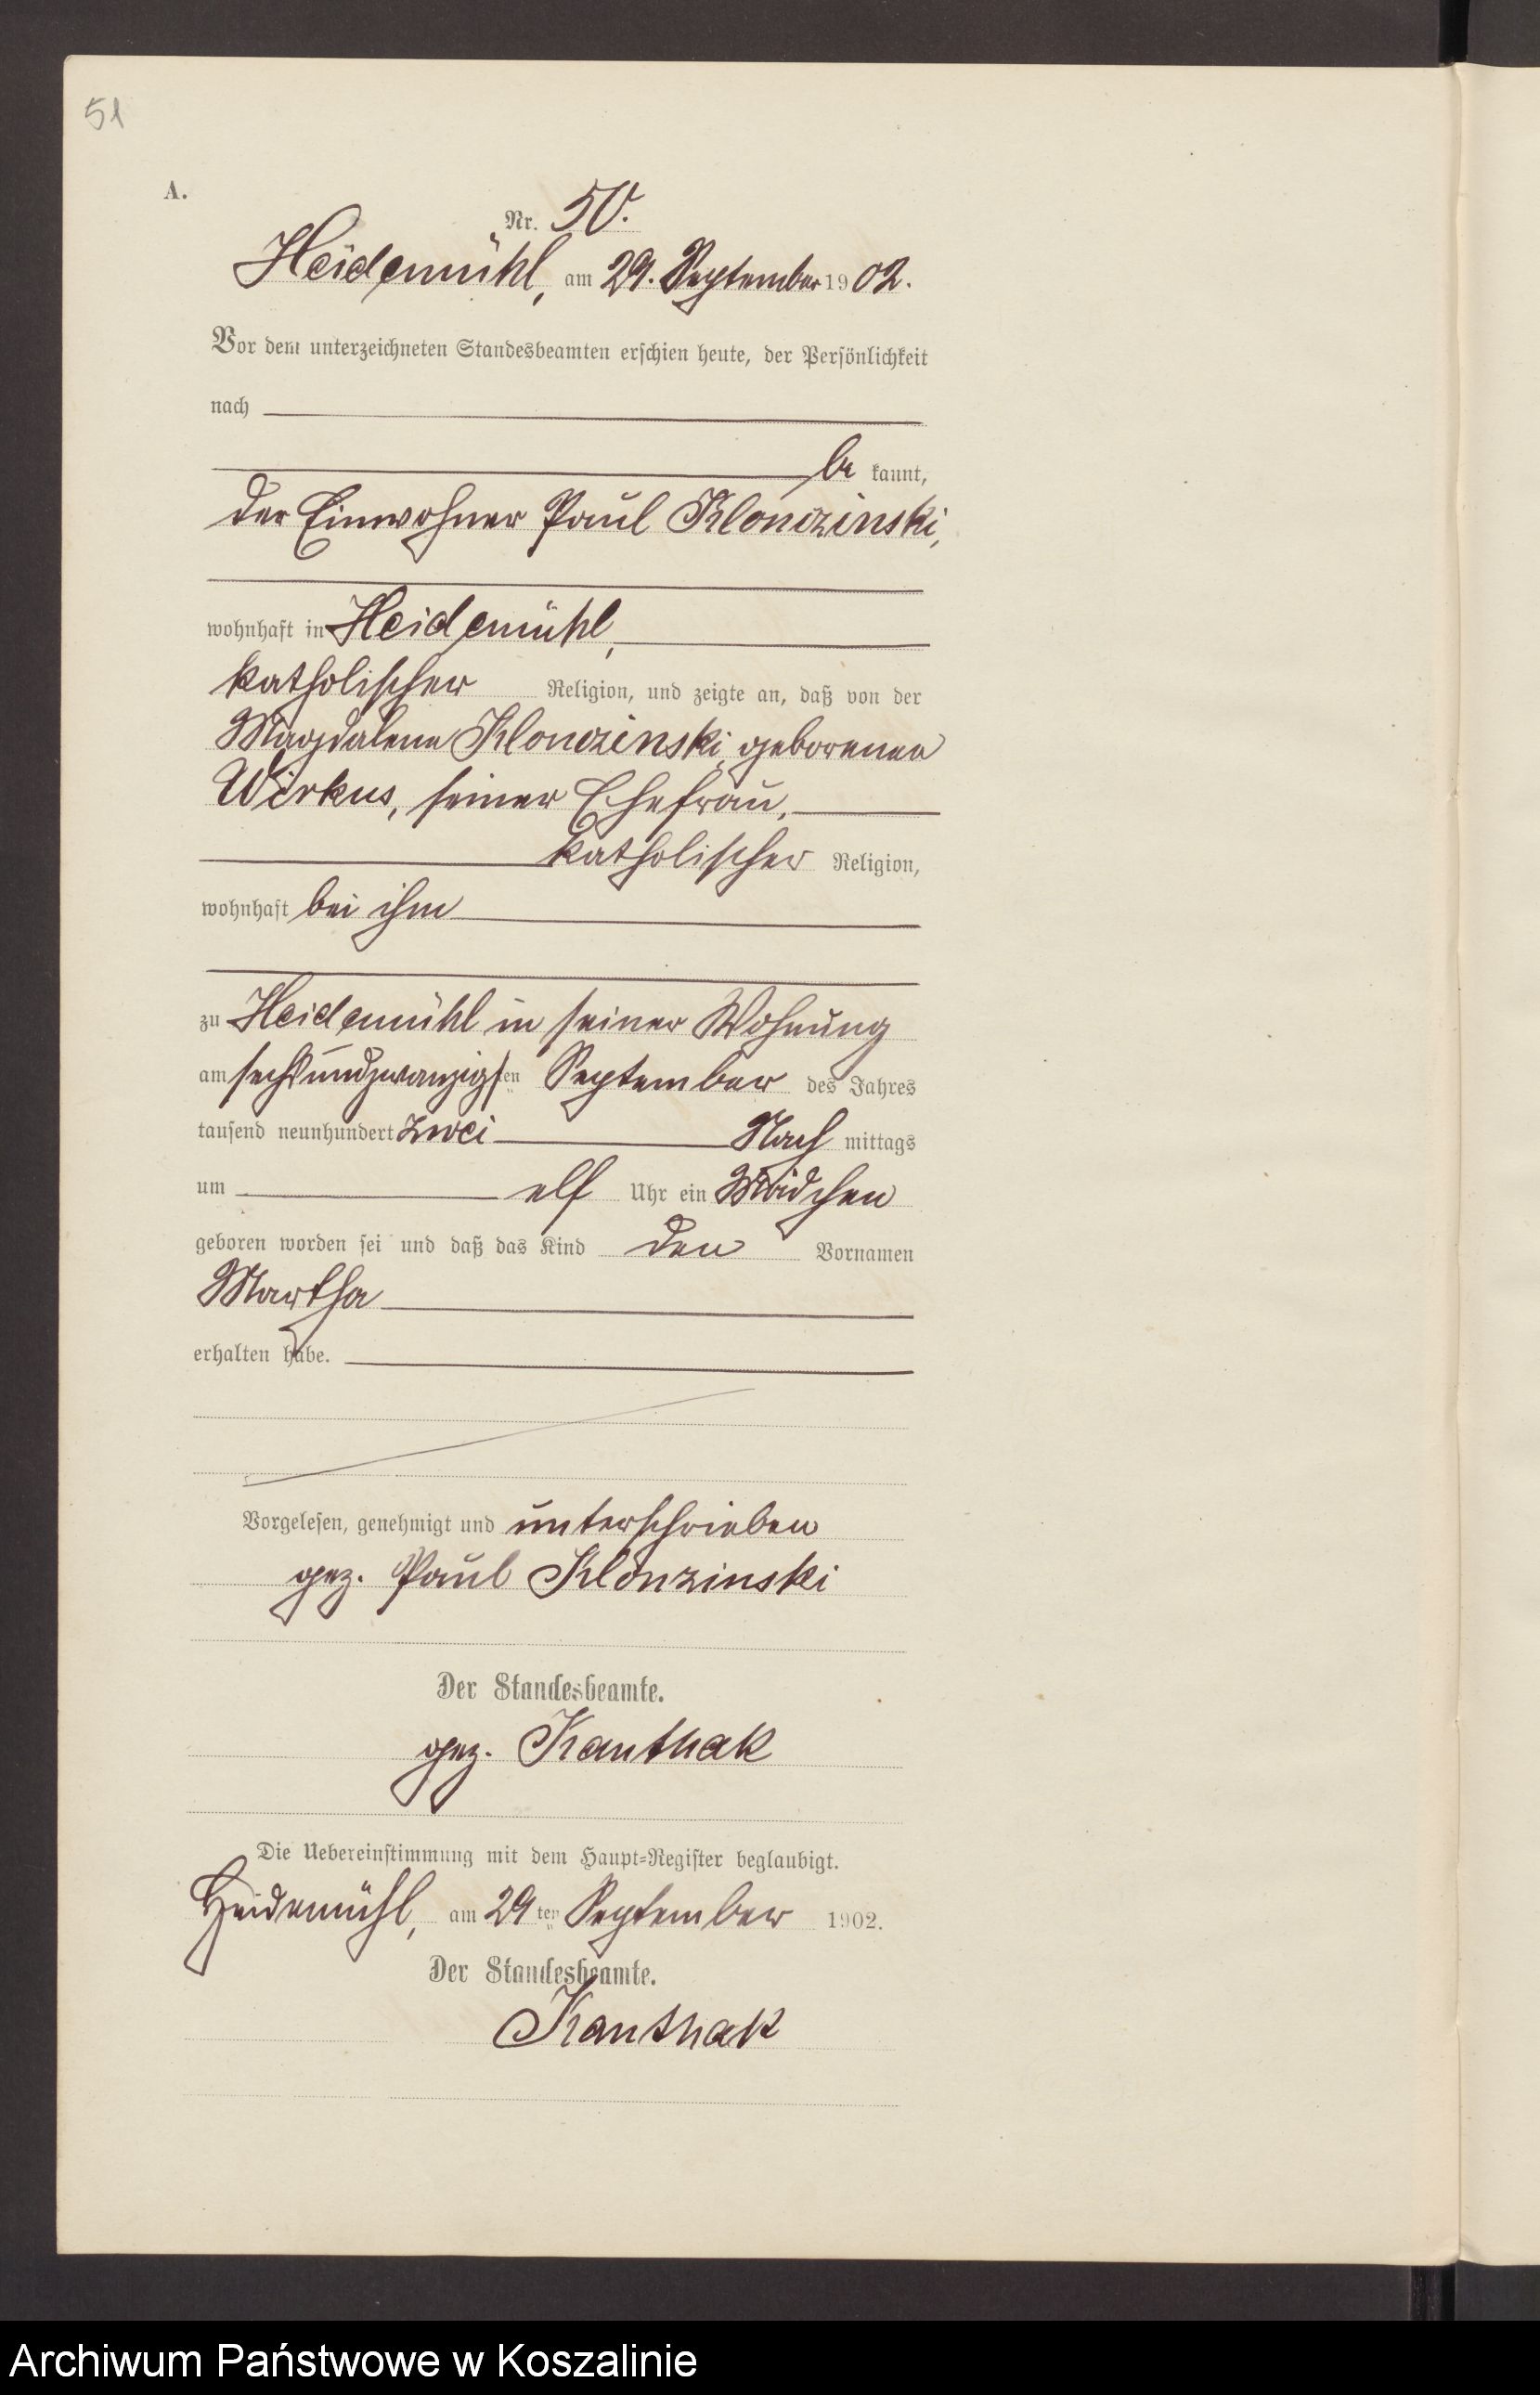 51
A.
Nr. 50.
Heidemühl, am 29. September 1902.
Vor dem unterzeichneten Standesbeamten erschien heute, der Persönlichkeit
nach
be kannt,
der Einwohner Paul Klonczinski,
wohnhaft in Heidemühl,
katholischer Religion, und zeigte an, daß von der
Magdalena Klonczinski, geborenen
Wirkus, seiner Ehefrau,
katholischer Religion,
wohnhaft bei ihm
zu Heidemühl in seiner Wohnung
am sechsundzwanzigsten September des Jahres
tausend neunhundert zwei Nach mittags
um elf Uhr ein Mädchen
geboren worden sei und daß das Kind den Vornamen
Martha
erhalten habe.
Vorgelesen, genehmigt und unterschrieben
gez. Paul Klonzinski
Der Standesbeamte.
gez. Kanthak
Die Uebereinstimmung mit dem Haupt-Register beglaubigt.
Heidemühl, am 29 ten September 1902.
Der Standesbeamte.
Kanthak
Archiwum Państwowe w Koszalinie